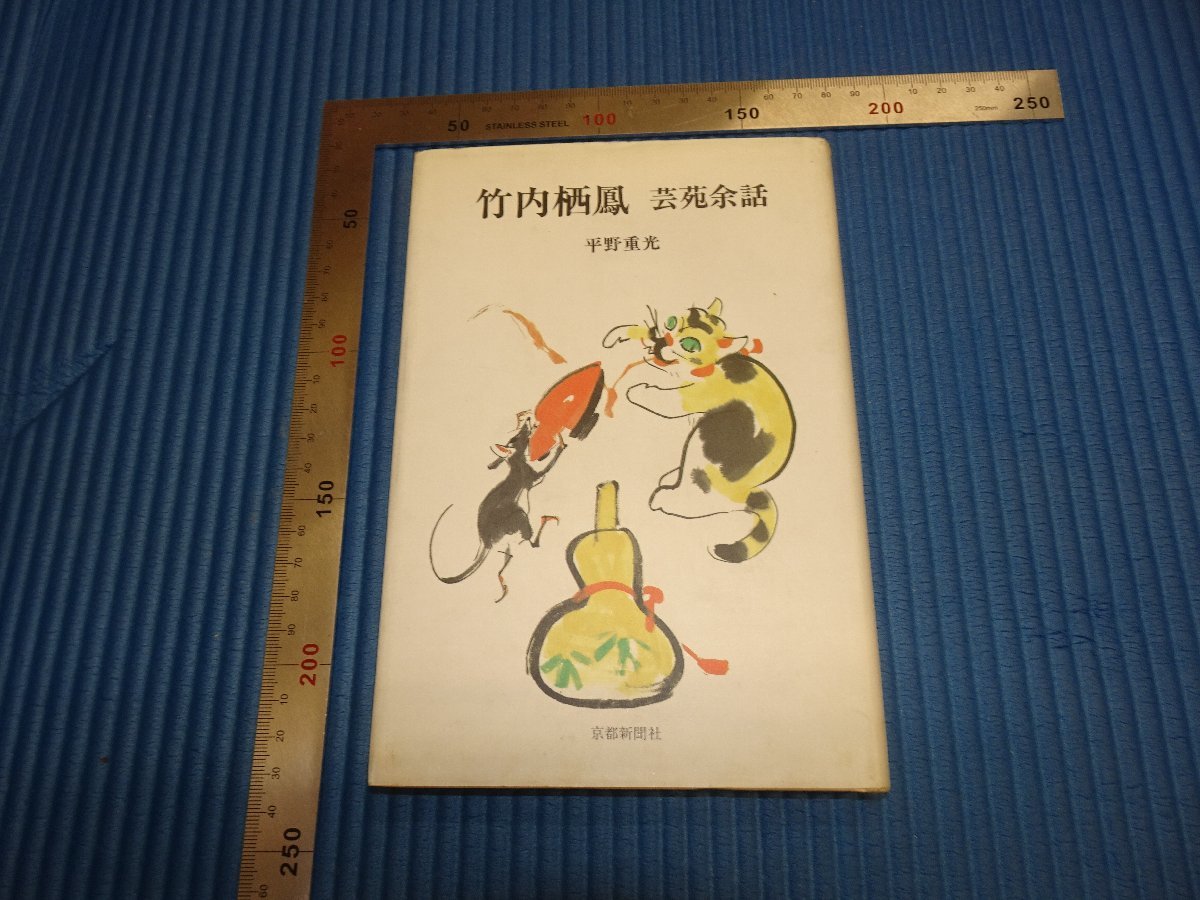 50 STAINLESS STEEL 100 150 200 250mm 250
50
100
150
200
250
竹内栖鳳 芸苑余話
平野重光
京都新聞社